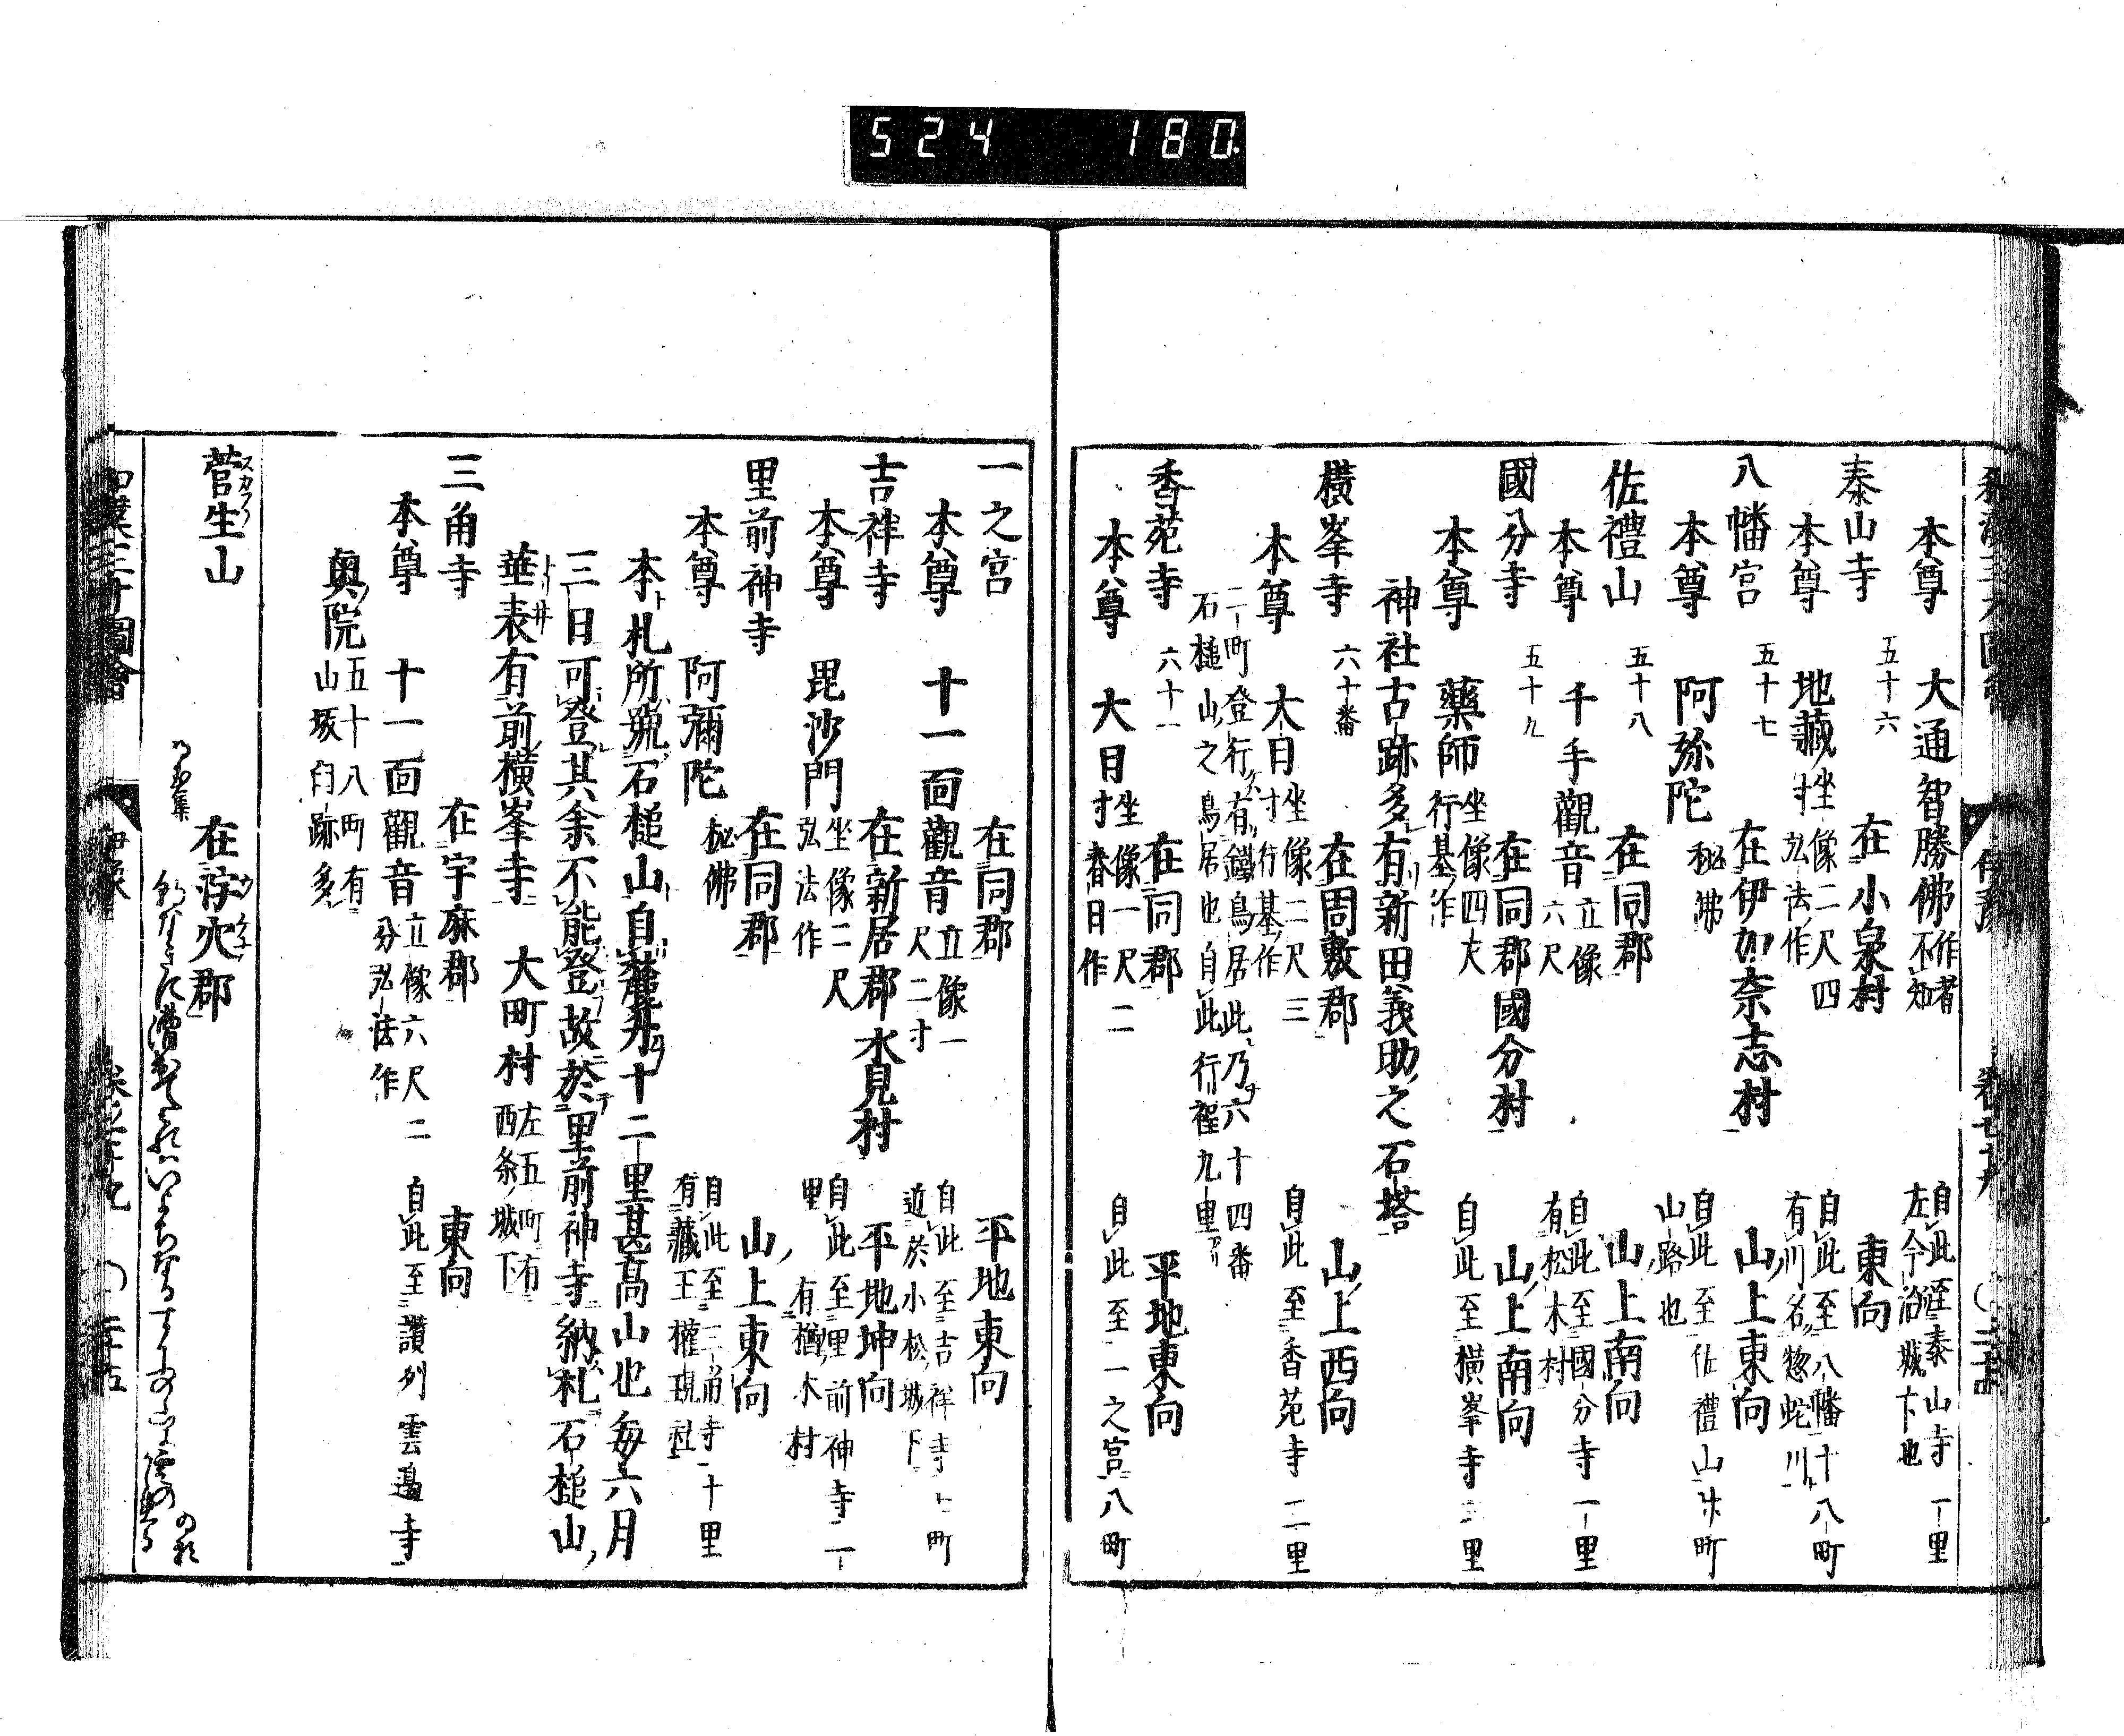 524 180
本尊 大通智勝佛 作者不知 自此至泰山寺一里 左今治城下也
泰山寺 五十六 在小泉村 東向
本尊 地藏 坐像二尺四寸 弘法作 自此至八幡十八町 有川名惣蛇川
八幡宮 五十七 在伊加奈志村 山上東向
本尊 阿弥陀 秘佛 自此至佐禮山廿町 山路也
佐禮山 五十八 在同郡 山上南向
本尊 千手觀音 立像六尺 自此至國分寺一里 有松木村
國分寺 五十九 在同郡國分村 山上南向
本尊 藥師 坐像四尺 行基作 自此至橫峯寺 里
神社古跡多有新田義助之石塔
橫峯寺 六十番 在周敷郡 山上西向
本尊 大日 坐像二尺三寸 行基作 自此至香苑寺二里
二町登行有鐵鳥居此乃六十四番
石槌山之鳥居也自此行程九里
香苑寺 六十一 在同郡 平地東向
本尊 大日 坐像一尺二寸 春日作 自此至一之宮八町
一之宮 在同郡 平地東向
本尊 十一面觀音 立像一尺二寸 自此至吉祥寺 町 近於小松城下
吉祥寺 在新居郡氷見村 平地坤向
本尊 毘沙門 坐像二尺 弘法作 自此至里前神寺一里 有楢木村
里前神寺 在同郡 山上東向
本尊 阿彌陀 秘佛 自此至三角寺十里 有藏王權現社
本札所號石槌山自麓舛十二里甚高山也每六月
三日可登其余不能登故於里前神寺納札石槌山
華表有前橫峯寺 大町村 左五町有西条城下
三角寺 在宇麻郡 東向
本尊 十一面觀音 立像六尺二分 弘法作 自此至讃列雲邊寺
奧院 五十八町有山坂臼跡多
菅生山 在浮穴郡
伊豫